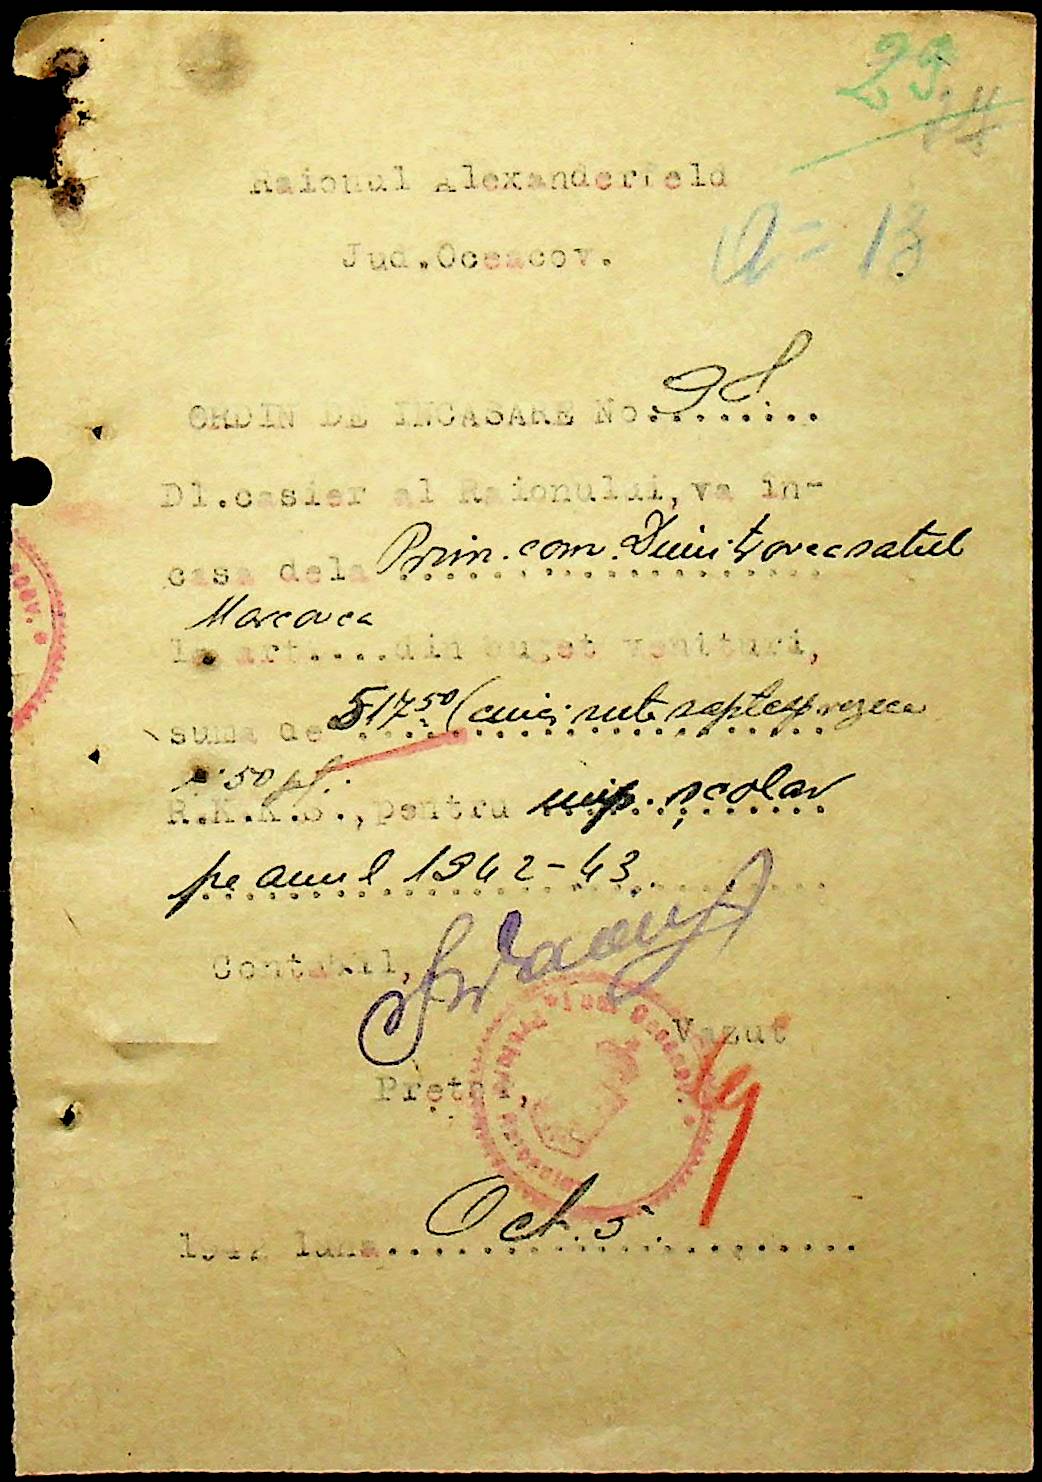 29
14
Raionul Alexanderfeld
a = 13
Jud.Oceacov.
ORDIN DE INCASARE No. 98
Dl.casier al Raionului, va în-
casa dela Prim. com. Dumitrovca satul
Marcovca
la art....din buget venituri,
suma de 517.50 (cinci sute saptesprezece
50 pf.
R.K.K.S., pentru imp. școlar
pe anul 1942-43
Contabil,
Vazut
Pretor,
1942 luna Oct. 5